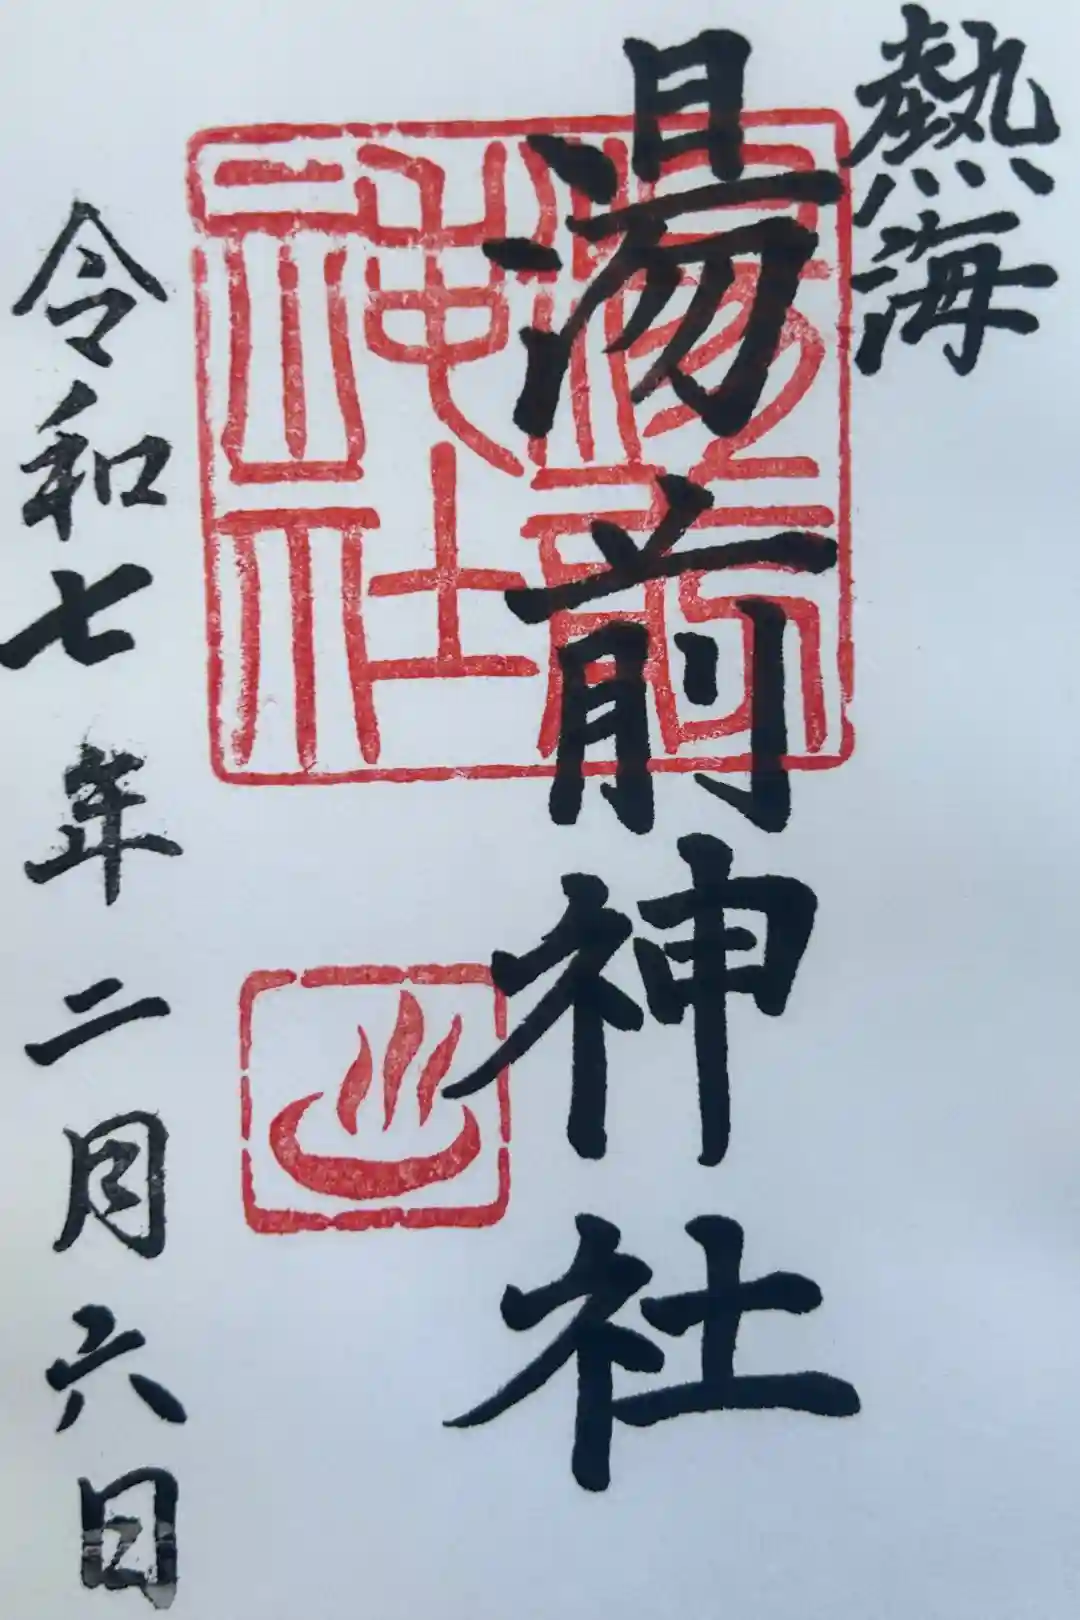 熱海
湯前神社
湯前
神社
令和七年二月六日